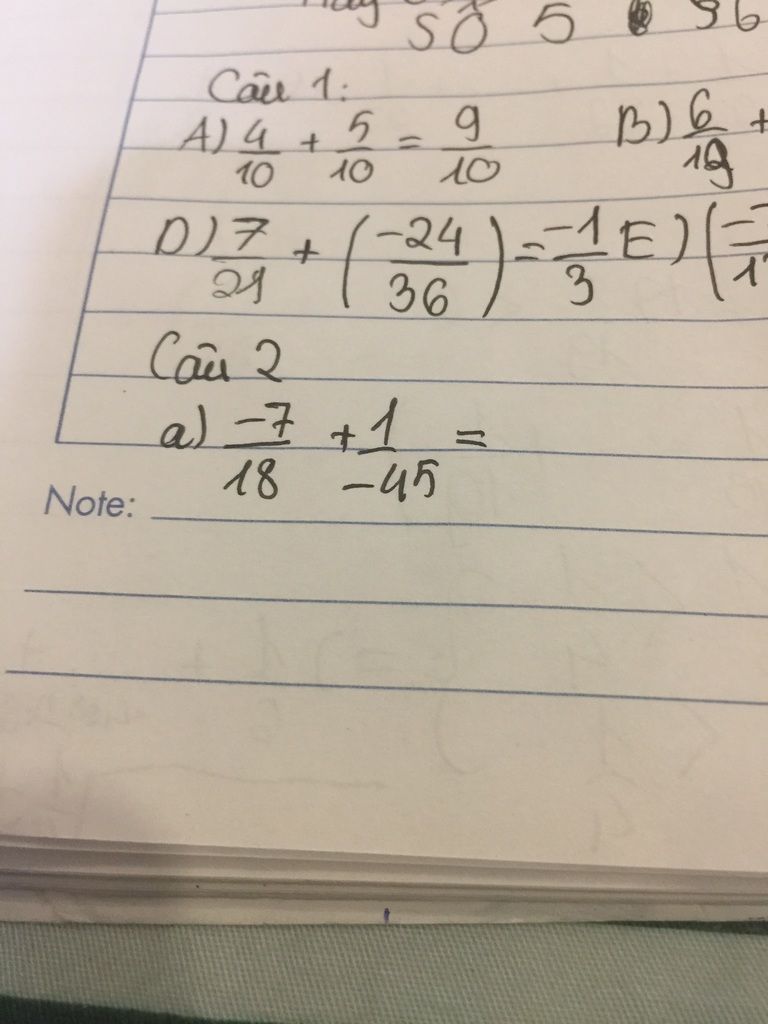 SỐ 5
Câu 1:
A) 4/10 + 5/10 = 9/10 B) 6/19 +
D) 7/21 + (-24/36) = -1/3 E) (
Câu 2
a) -7/18 + 1/-45 =
Note: